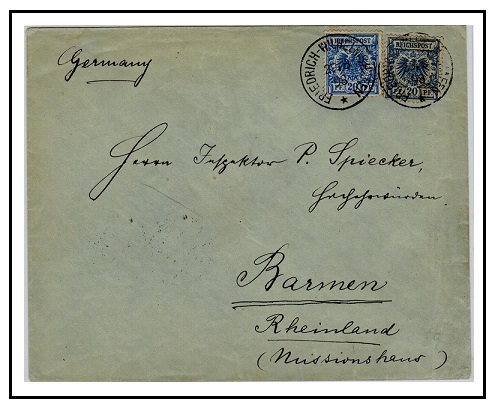 Germany
FRIEDRICH-WILH
REICHSPOST
REICHSPOST
20 PF
20 PF
Herrn Inspektor P. Spiecker,
Hochehrwürden.
Barmen
Rheinland
(Missionshaus)